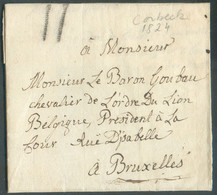 Corbeek
1824
à Monsieur
Monsieur Le Baron Goubau
chevalier de L'ordre Du Lion
Belgique, President à La
Cour Rue D'isabelle
à Bruxelles